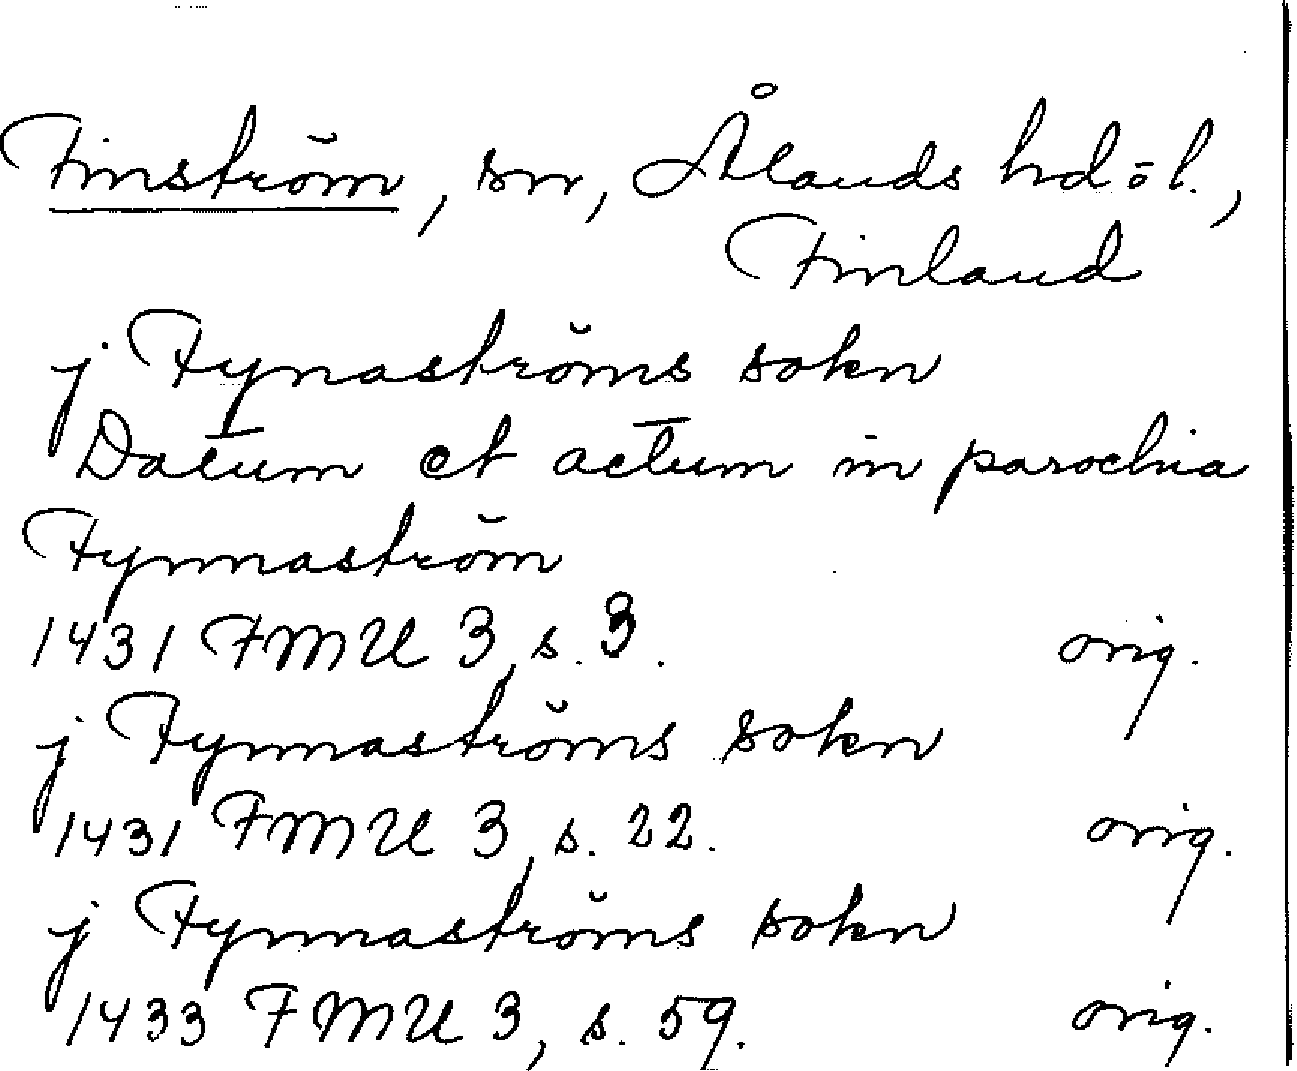 Finström, sn, Ålands hd öl.,
Finland
j Fynaströms sokn
Datum et actum in parochia
Fynnaström
1431 FMU 3, s. 3. orig.
j Fynnaströms sokn
1431 FMU 3, s. 22. orig.
j Fynnaströms sokn
1433 FMU 3, s. 59. orig.